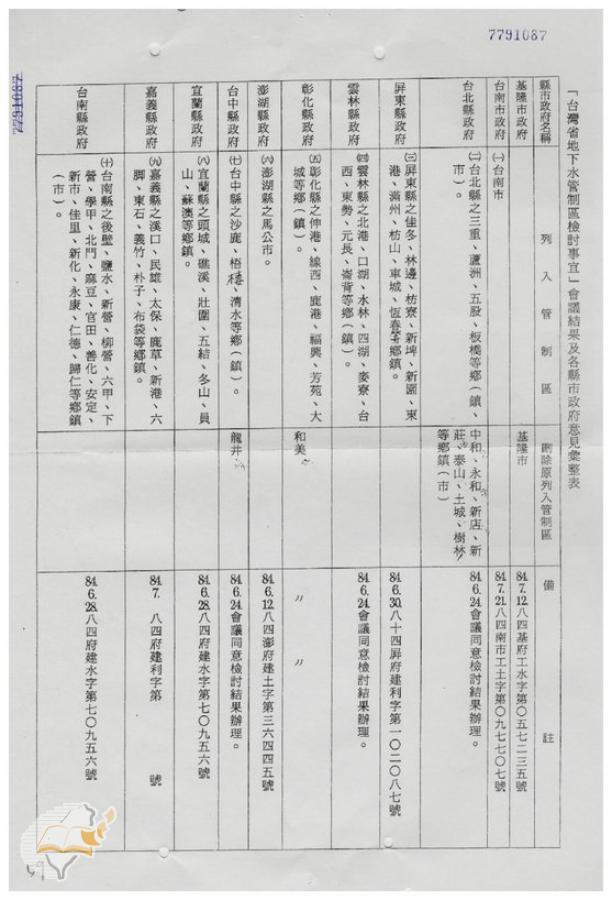 7791087
7791087
「台灣省地下水管制區檢討事宜」會議結果及各縣市政府意見彙整表
縣市政府名稱
列入管制區
刪除原列入管制區
備註
基隆市政府
基隆市
84.7.12.八四基府工水字第〇五七二三五號
台南市政府
(一)台南市
84.7.21.八四南市工土字第〇九七七〇七號
台北縣政府
(二)台北縣之三重、蘆洲、五股、板橋等鄉(鎮、
市)。
中和、永和、新店、新
莊、泰山、土城、樹林
等鄉鎮(市)
84.6.24.會議同意檢討結果辦理。
屏東縣政府
(三)屏東縣之佳冬、林邊、枋寮、新埤、新園、東
港、滿州、枋山、車城、恆春等鄉鎮。
84.6.30.八十四屏府建利字第一〇二〇八七號
雲林縣政府
(四)雲林縣之北港、口湖、水林、四湖、麥寮、台
西、東勢、元長、崙背等鄉(鎮)。
84.6.24.會議同意檢討結果辦理。
彰化縣政府
(五)彰化縣之伸港、線西、鹿港、福興、芳苑、大
城等鄉(鎮)。
和美
〃 〃
澎湖縣政府
(六)澎湖縣之馬公市。
84.6.12.八四澎府建土字第三六四四五號
台中縣政府
(七)台中縣之沙鹿、梧棲、清水等鄉(鎮)。
龍井
84.6.24.會議同意檢討結果辦理。
宜蘭縣政府
(八)宜蘭縣之頭城、礁溪、壯圍、五結、冬山、員
山、蘇澳等鄉鎮。
84.6.28.八四府建水字第七〇九五六號
嘉義縣政府
(九)嘉義縣之溪口、民雄、太保、鹿草、新港、六
腳、東石、義竹、朴子、布袋等鄉鎮。
84.7. 八四府建利字第 號
台南縣政府
(十)台南縣之後壁、鹽水、新營、柳營、六甲、下
營、學甲、北門、麻豆、官田、善化、安定、
新市、佳里、新化、永康、仁德、歸仁等鄉鎮
(市)。
84.6.28.八四府建水字第七〇九五六號